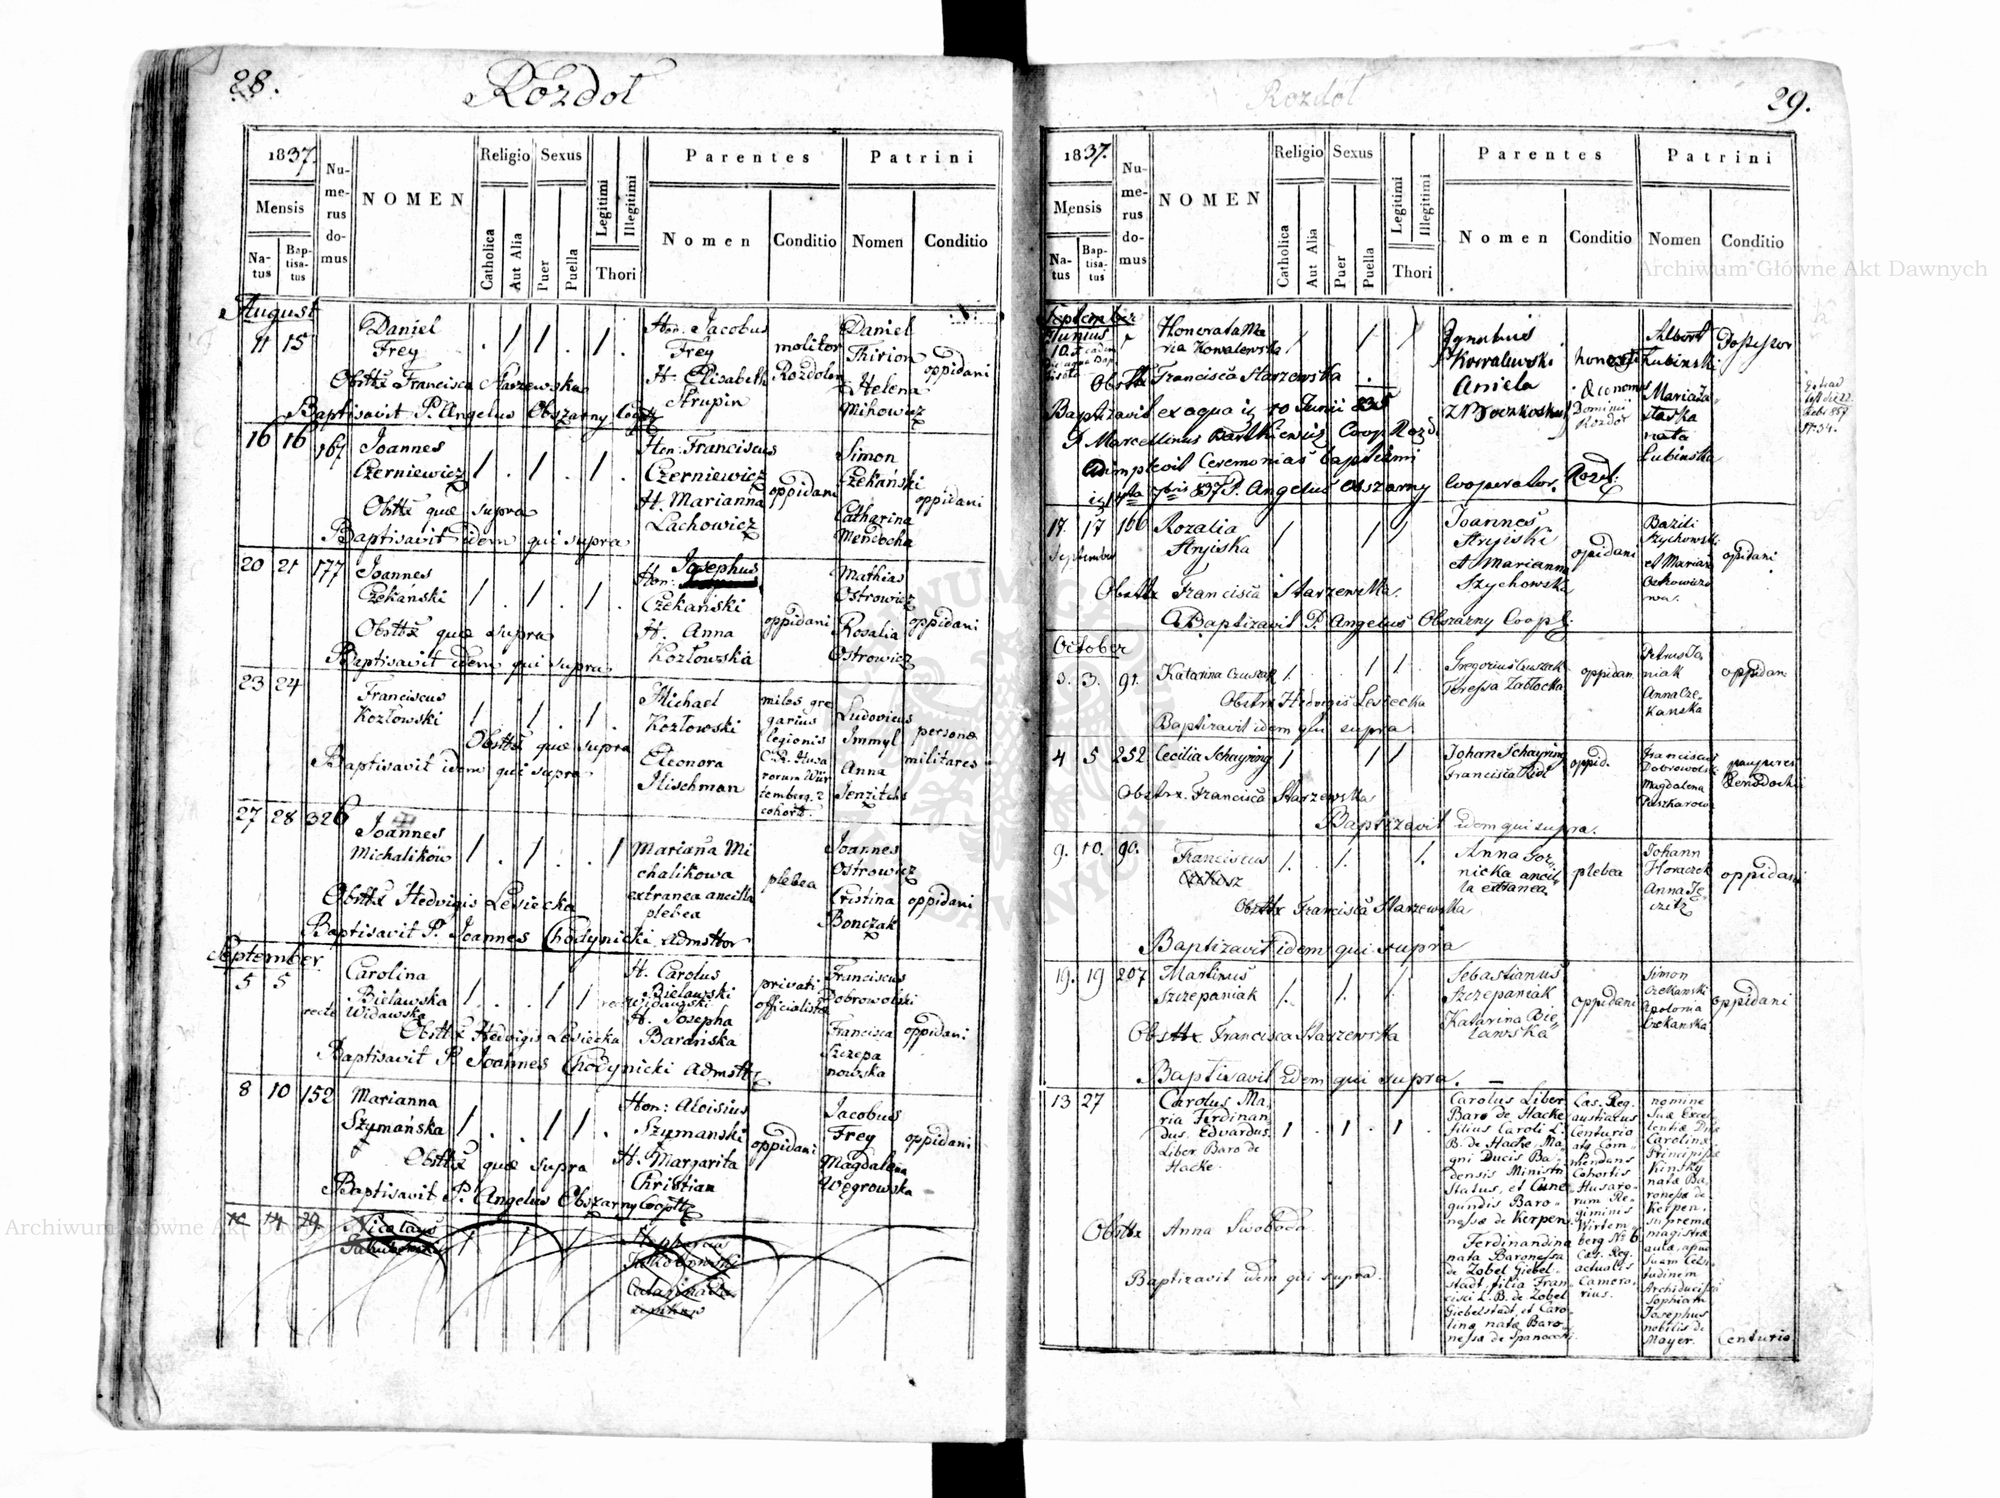 28.
Rozdol
1837.
Mensis
Na-
tus
Bap-
tisa-
tus
Nu-
me-
rus
do-
mus
NOMEN
Religio
Catholica
Aut Alia
Sexus
Puer
Puella
Legitimi
Illegitimi
Thori
Parentes
Nomen
Conditio
Patrini
Nomen
Conditio
August
11 15
Daniel
Frey
Hon. Jacobus
Frey
H. Elisabeth
Strupin
molitor
Rozdolen
Daniel
Thirion
Helena
Mihowicz
oppidani
Obsttx Francisca Starzewska
Baptisavit P. Angelus Obszarny Coop
16 16 167
Joannes
Czerniewicz
Hon: Franciscus
Czerniewicz
H. Marianna
Lachowicz
oppidani
Simon
Czekański
Catharina
Mendocha
oppidani
Obsttx quæ supra
Baptisavit idem qui supra
20 21 177
Joannes
Czekanski
Hon: Josephus
Czekański
H. Anna
Kozłowska
oppidani
Mathias
Ostrowicz
Rosalia
Ostrowicz
oppidani
Obsttx quæ supra
Baptisavit idem qui supra
23 24
Franciscus
Kozłowski
Michael
Kozłowski
Eleonora
Flischman
miles gre
garius
legionis
C. R. Husa
rorum Wür
temberg. 2
cohort.
Ludovicus
Immyl
Anna
Jenzitch
personæ
militares
Obsttx quæ supra
Baptisavit idem qui supra
27 28 326
Joannes
Michalikow
Marianna Mi
chalikowa
extranea ancilla
plebea
plebea
Joannes
Ostrowicz
Cristina
Bonczak
oppidani
Obsttx Hedvigis Lesiecka
Baptisavit P. Joannes Chodynicki Admsttor
September
5 5
Carolina
Bielawska
recte Widawska
H. Carolus
Bielawski
Widawski
H. Josepha
Baranska
privati
officialista
Franciscus
Dobrowolski
Francisca
Szczepa
nowska
oppidani
Obsttx Hedvigis Lesiecka
Baptisavit P. Joannes Chodynicki Admstt
8 10 152
Marianna
Szymańska
Hon: Aloisius
Szymanski
H. Margarita
Christian
oppidani
Jacobus
Frey
Magdalena
Węgrowska
oppidani
Obsttx quæ supra
Baptisavit P. Angelus Obszarny Coopttx
14 29
Nicolaus
Jakubowski
Stephanus
Jakubowski
29.
Rozdol
1837.
Mensis
Na-
tus
Bap-
tisa-
tus
Nu-
me-
rus
do-
mus
NOMEN
Religio
Catholica
Aut Alia
Sexus
Puer
Puella
Legitimi
Illegitimi
Thori
Parentes
Nomen
Conditio
Patrini
Nomen
Conditio
September
Junius
10
Honorata Ma
ria Kowalewska
Kowalewski
Aniela
Albert
Łubinski
Maria Za
starka
nata
Łubinska
Possessor
Dominii
Rozdol
Obsttx Francisca Starzewska
Baptizavit ex aqua 10 Junii 835
P Marcellinus Bartkiewicz Coop Rozd.
adimplevit Ceremonias baptismi
837 P. Angelus Obszarny Cooperator. Rozd:
17. 17 166
September
Rozalia
Stryiska
Joannes
Stryiski
et Marianna
Szychowska
opidani
Bazili
Szychowski
et Marian
opidani
Obsttx Francisca Starzewska.
Baptizavit P. Angelus Obszarny Coop
October
3. 3. 91.
Katarina Czuszek
Gregorius Czuszek
Teressa Zabłocka
oppidan.
Petrus Ja
niak
Anna Cze-
kanska
oppidan
Obsttrx Hedvigis Lesiecka
Baptizavit idem qui supra.
4 5 252
Cecilia Schayring
Johan Schayring
Francisca Ridl
oppid.
Franciscus
Dobrowolski
Magdalena
Paszkarow
pauperes
Obsttrx. Francisca Starzewska
Baptizavit idem qui supra.
9. 10. 90.
Franciscus
Anna Gor-
nicka ancil-
la extanea
plebea
Johann
Horaczek
Anna Je-
czitz
oppidani
Obsttx Francisca Starzewska
Baptizavit idem qui supra
19. 19 207
Martinus
Szczepaniak
Sebastianus
Szczepaniak
Katarina Bie-
lawska
oppidani
Simon
Czekanski
Apolonia
Czekanska
oppidani
Obsttx. Francisca Starzewska
Baptisavit idem qui supra.
13 27
Carolus Ma-
ria Ferdinan-
dus. Edvardus.
Liber Baro de
Hacke.
Carolus Liber
Baro de Hacke
filius Caroli L.
B. de Hacke, Ma-
gni Ducis Ba-
densis Ministri
Status, et Cune
gundis Baro-
nessæ de Kerpen.
Ferdinandina
nata Baronessa
de Zobel Giebel-
stadt, filia Fran-
cisci L. B. de Zobel
Giebelstadt, et Caro-
linæ natæ Baro-
nessæ de Spanocchi.
Cæs. Reg.
austiacus
Centurio
atq Com-
mendans
Cohortis
Husaro-
rum Re-
giminis
Wirtem-
berg No 6
Cæs. Reg.
actualis
Camera-
rius.
nomine
Suæ Excel-
lentiæ Dnæ
Carolinæ
Principissæ
Kinsky
natæ Ba-
ronessæ de
Kerpen.
supremæ
magistræ
aulæ, apud
Suam Celsi-
tudinem
Archiducissa
Sophiam
Josephus
nobilis de
Mayer.
Centurio
Obsttx Anna Swoboda.
Baptizavit idem qui supra.
Archiwum Główne Akt Dawnych
Archiwum Główne Akt Dawnych